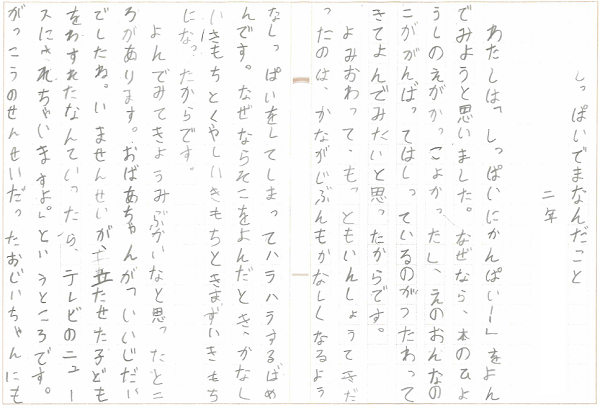 しっぱいでまなんだこと
二年
わたしは、「しっぱいにかんぱい!」をよん
でみようと思いました。なぜなら、本のひょ
うしのえがかっこよかったし、えのおんなの
こががんばってはしっているのがつたわって
きてよんでみたいと思ったからです。
よみおわって、もっともいんしょうてきだ
ったのは、かながじぶんもかなしくなるよう
なしっぱいをしてしまってハラハラするばめ
んです。なぜならそこをよんだとき、かなし
いきもちとくやしいきもちときまずいきもち
になったからです。
よんでみてきょうみぶかいなと思ったとこ
ろがあります。おばあちゃんが「いいじだい
でしたね。いませんせいが、立たせた子ども
をわすれたなんていったら、テレビのニュー
スにされちゃいますよ。」というところです。
がっこうのせんせいだったおじいちゃんにも